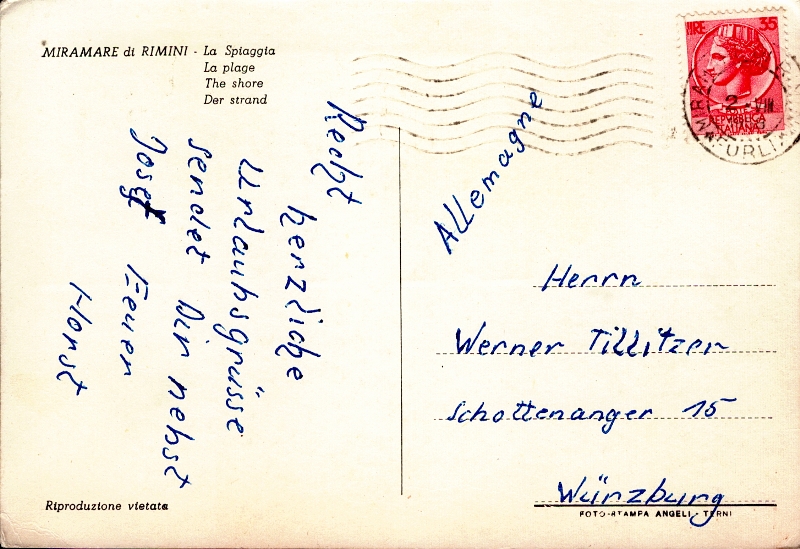 MIRAMARE di RIMINI - La Spiaggia
La plage
The shore
Der strand
Recht
herzliche
Urlaubsgrüsse
sendet Dir nebst
Josef Euer
Horst
Riproduzione vietata
LIRE 35
POSTE
REPVBBLICA
ITALIANA
2 - VIII
Allemagne
Herrn
Werner Tillitzer
Schottenanger 15
Würzburg
FOTO-STAMPA ANGELI - TERNI